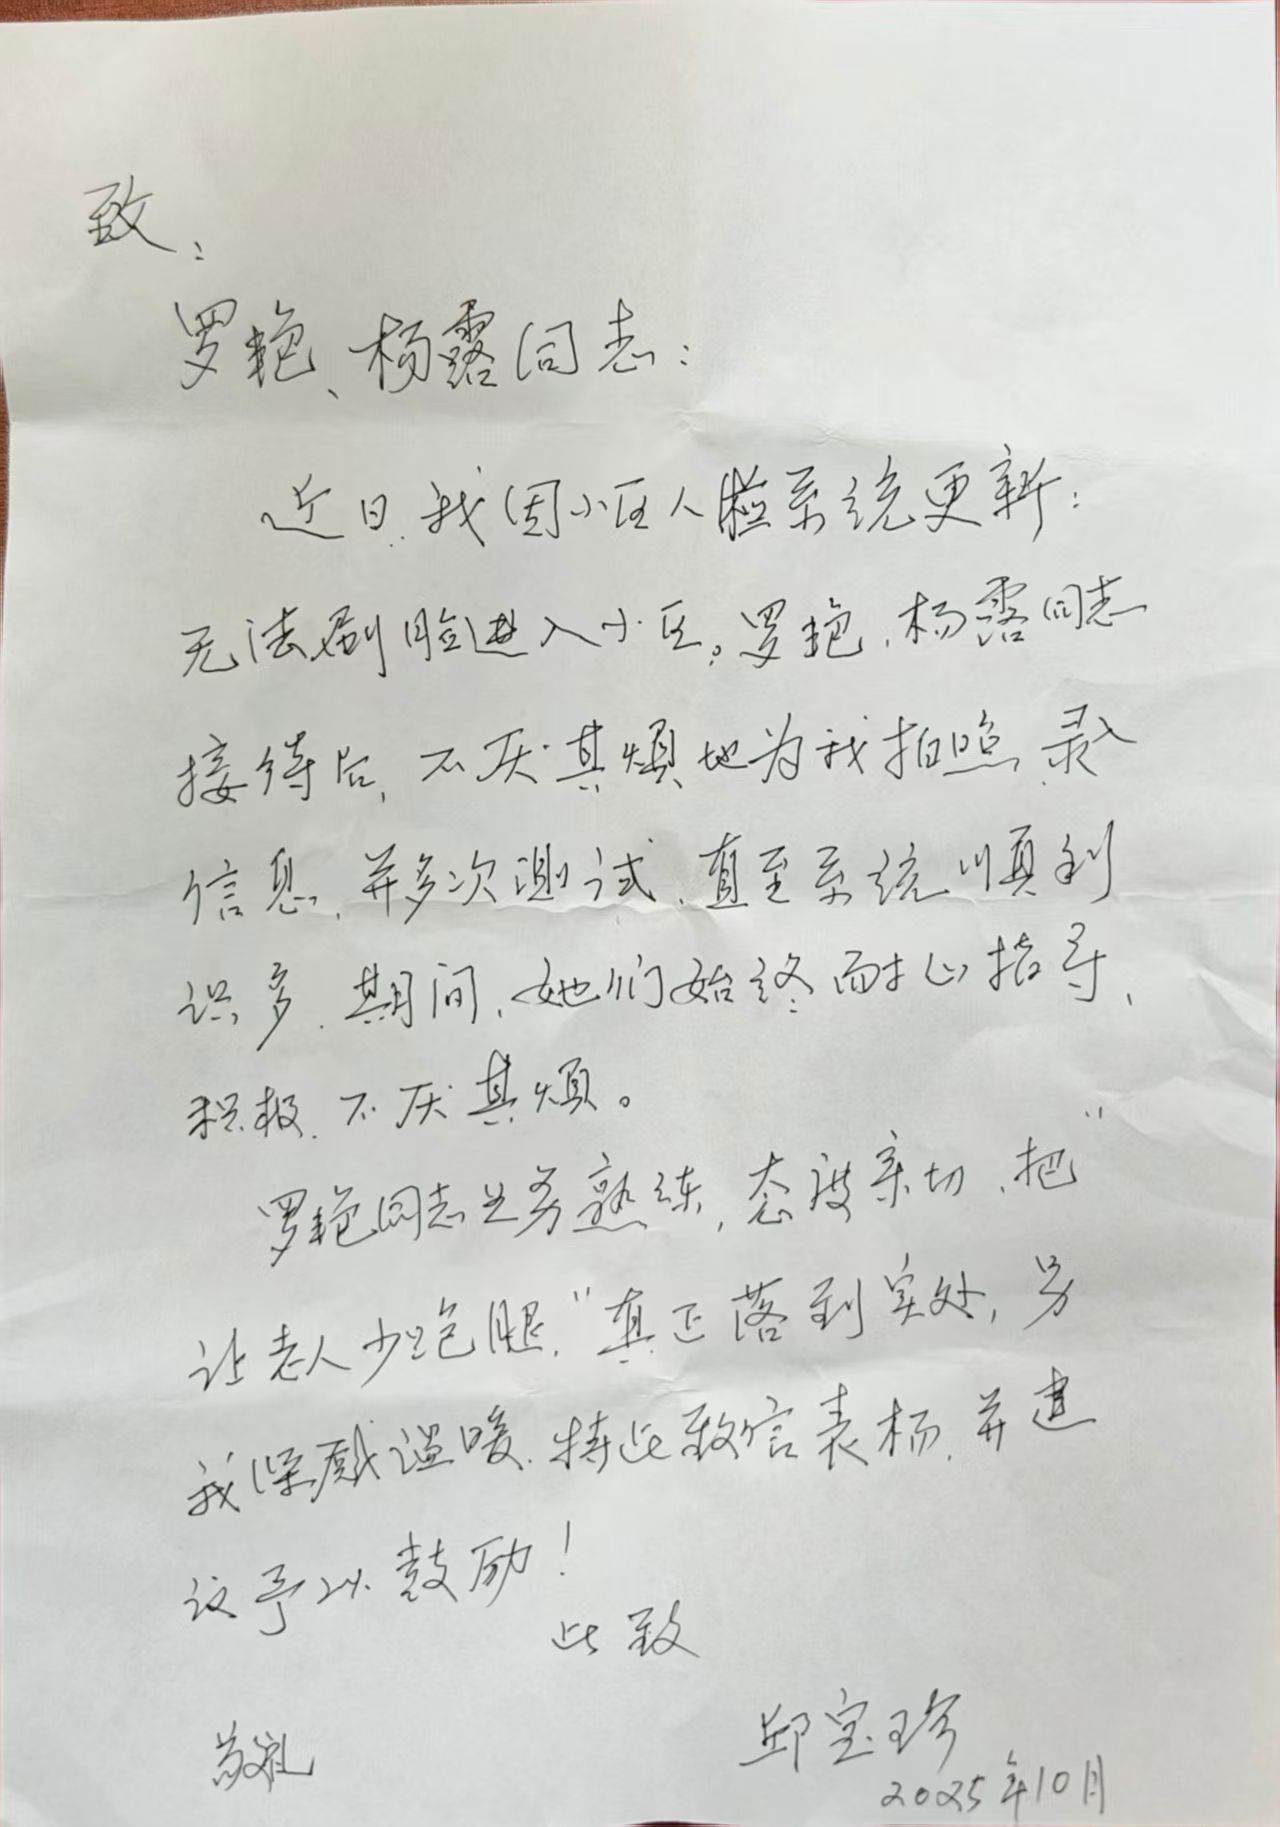 致：
罗艳、杨露同志：
近日,我因小区人脸系统更新：
无法刷脸进入小区。罗艳、杨露同志
接待后,不厌其烦地为我拍照、录入
信息,并多次测试,直至系统顺利
识多,期间,她们始终耐心指导,
积极、不厌其烦。
罗艳同志业务熟练,态度亲切、把“
让老人少跑腿,”真正落到实处,另
我深感温暖,特此致信表杨,并建
议予以鼓励！
此致
敬礼
邱宝珍
2025年10月